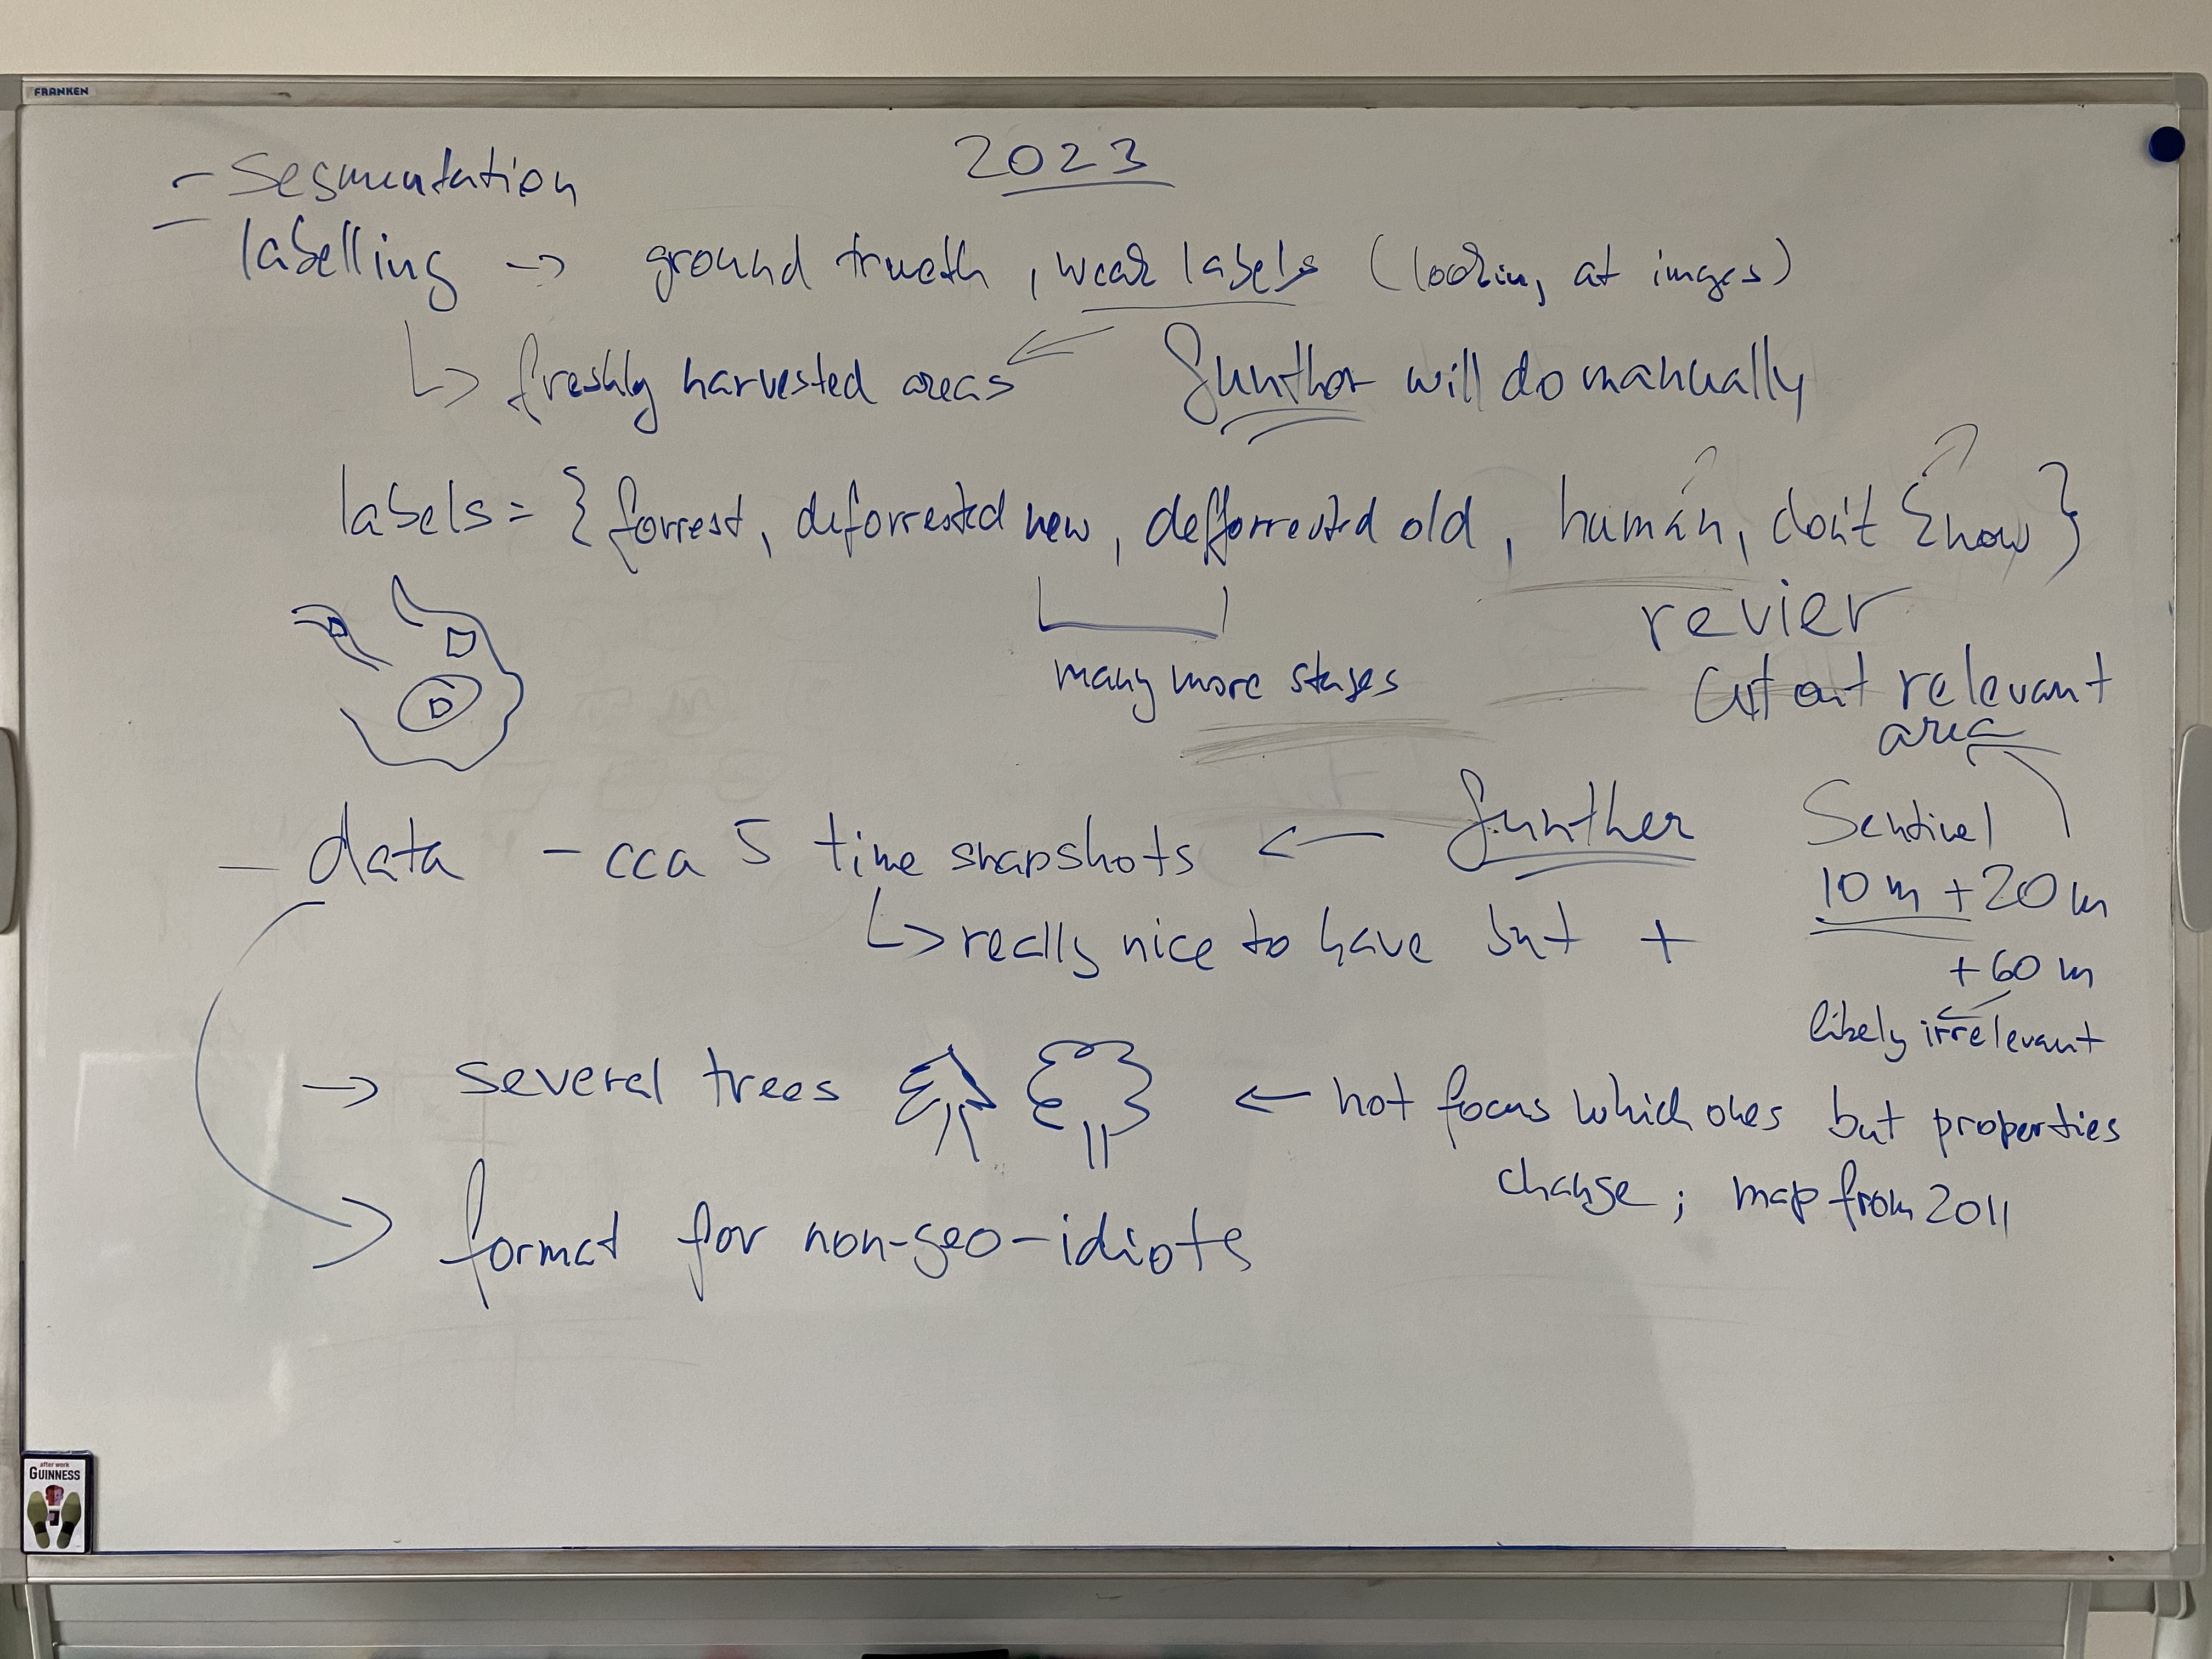 FRANKEN
2023
- Segmentation
- labelling → ground trueth, weak labels (looking at images)
↳ freshly harvested areas
Gunther will do manually
labels = { forrest, deforrested new, defforrested old, human, don't know }
many more stages
revier
cut out relevant
area
- data - cca 5 time snapshots ← Gunther
↳ really nice to have but +
Sentinel
10 m + 20 m
+ 60 m
likely irrelevant
→ several trees ← not focus which ones but properties
change ; map from 2011
format for non-geo-idiots
after work
GUINNESS